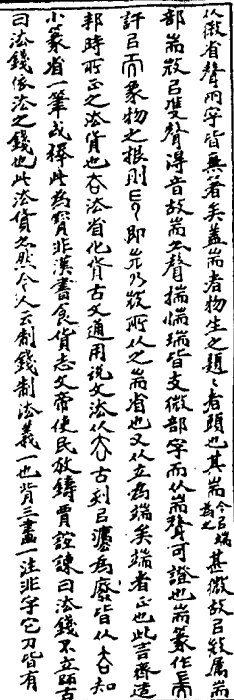 从微省聲兩字皆無省矣蓋耑者物生之題題者頭也其耑今以端為之甚微故㠯敚屬耑
部耑敚㠯雙聲得音故而又聲揣惴瑞皆支微部字而从耑聲可證也耑篆作
許㠯而象物之根則即敚所从之耑省也又从立為端矣端者正也此言齊造
邦時所正之法貨也法省化貨古文通用說文法从古到㠯灋為廢皆从知
小篆省一筆或釋此為寶非漢書食貨志文帝使民放鑄賈誼諫曰法錢不立師古
曰法錢依法之錢也此法貨之然今人云制錢制法義一也背三畫一注非字它刀皆有